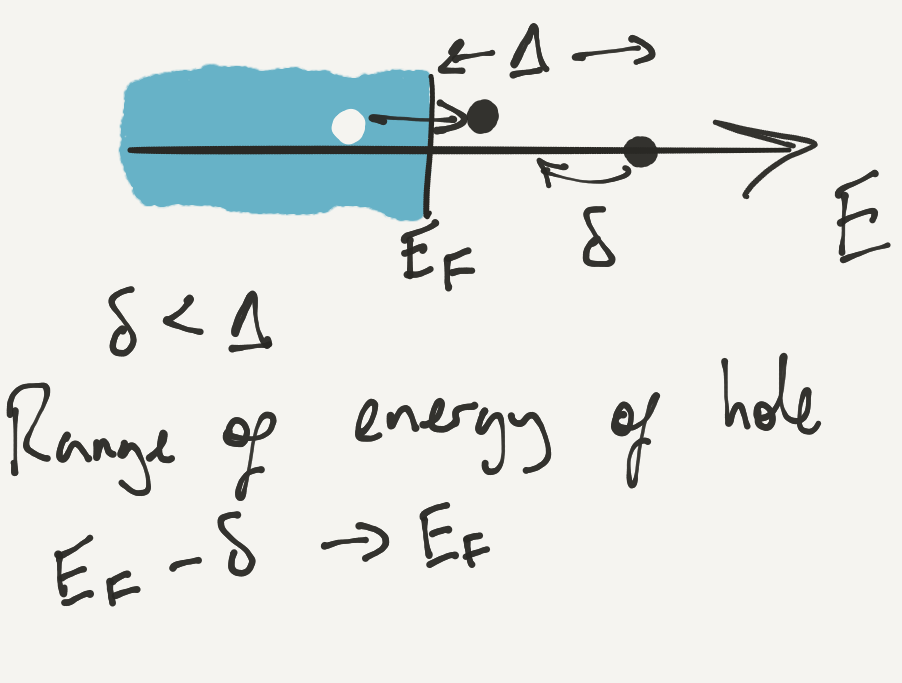 ← Δ →
E_F
δ
E
δ < Δ
Range of energy of hole
E_F - δ → E_F